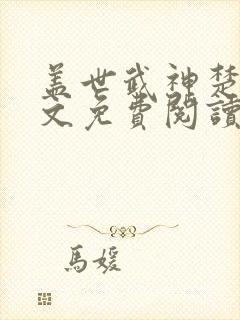 盖世武神楚
文免費閱讀
馬媛